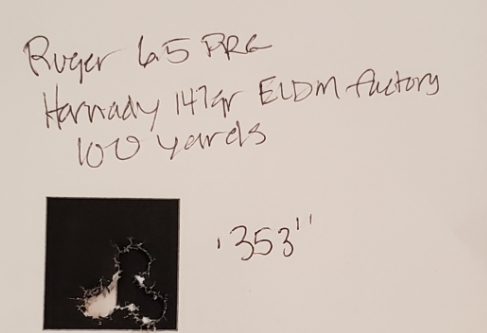 Ruger 6.5 PRC
Hornady 147gr ELDM factory
100 yards
.353"